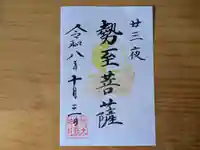 廿三夜
勢至菩薩
令和八年十月二日